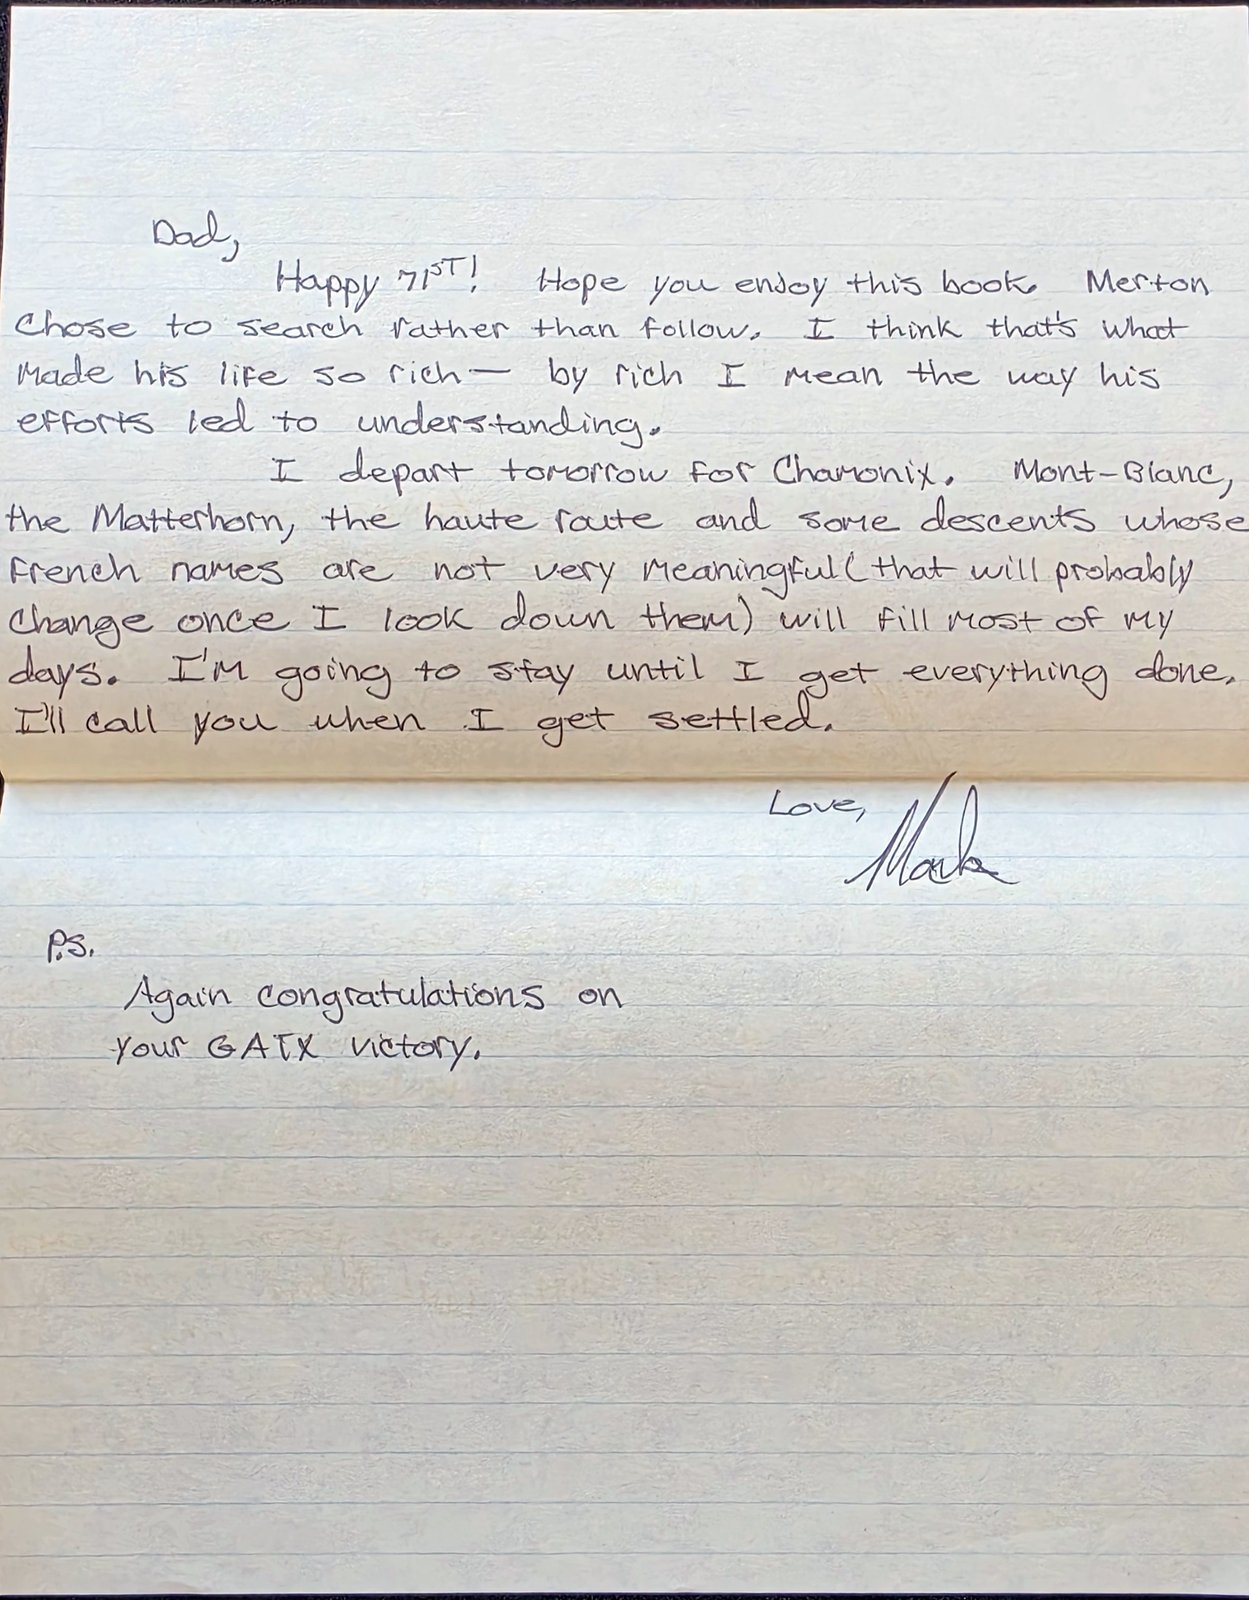 Dad,
Happy 71ST! Hope you enjoy this book. Merton
chose to search rather than follow. I think that's what
made his life so rich— by rich I mean the way his
efforts led to understanding.
I depart tomorrow for Chamonix. Mont-Blanc,
the Matterhorn, the haute route and some descents whose
French names are not very meaningful (that will probably
change once I look down them) will fill most of my
days. I'm going to stay until I get everything done.
I'll call you when I get settled.
Love,
Mark
P.S.
Again congratulations on
your GATX victory.